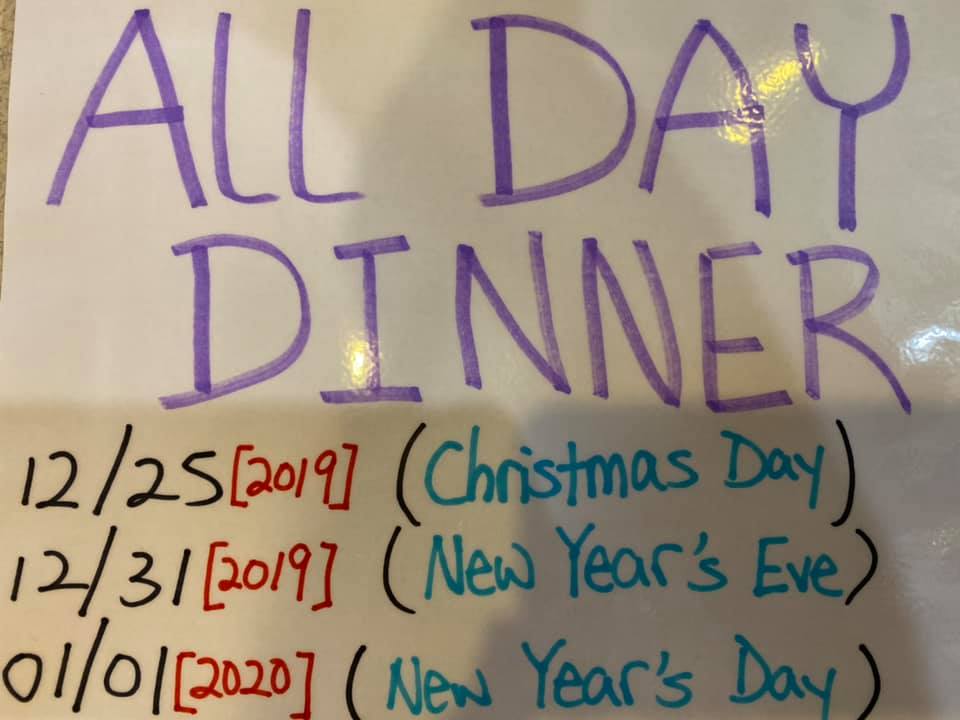 ALL DAY
DINNER
12/25 [2019] (Christmas Day)
12/31 [2019] (New Year's Eve)
01/01 [2020] (New Year's Day)